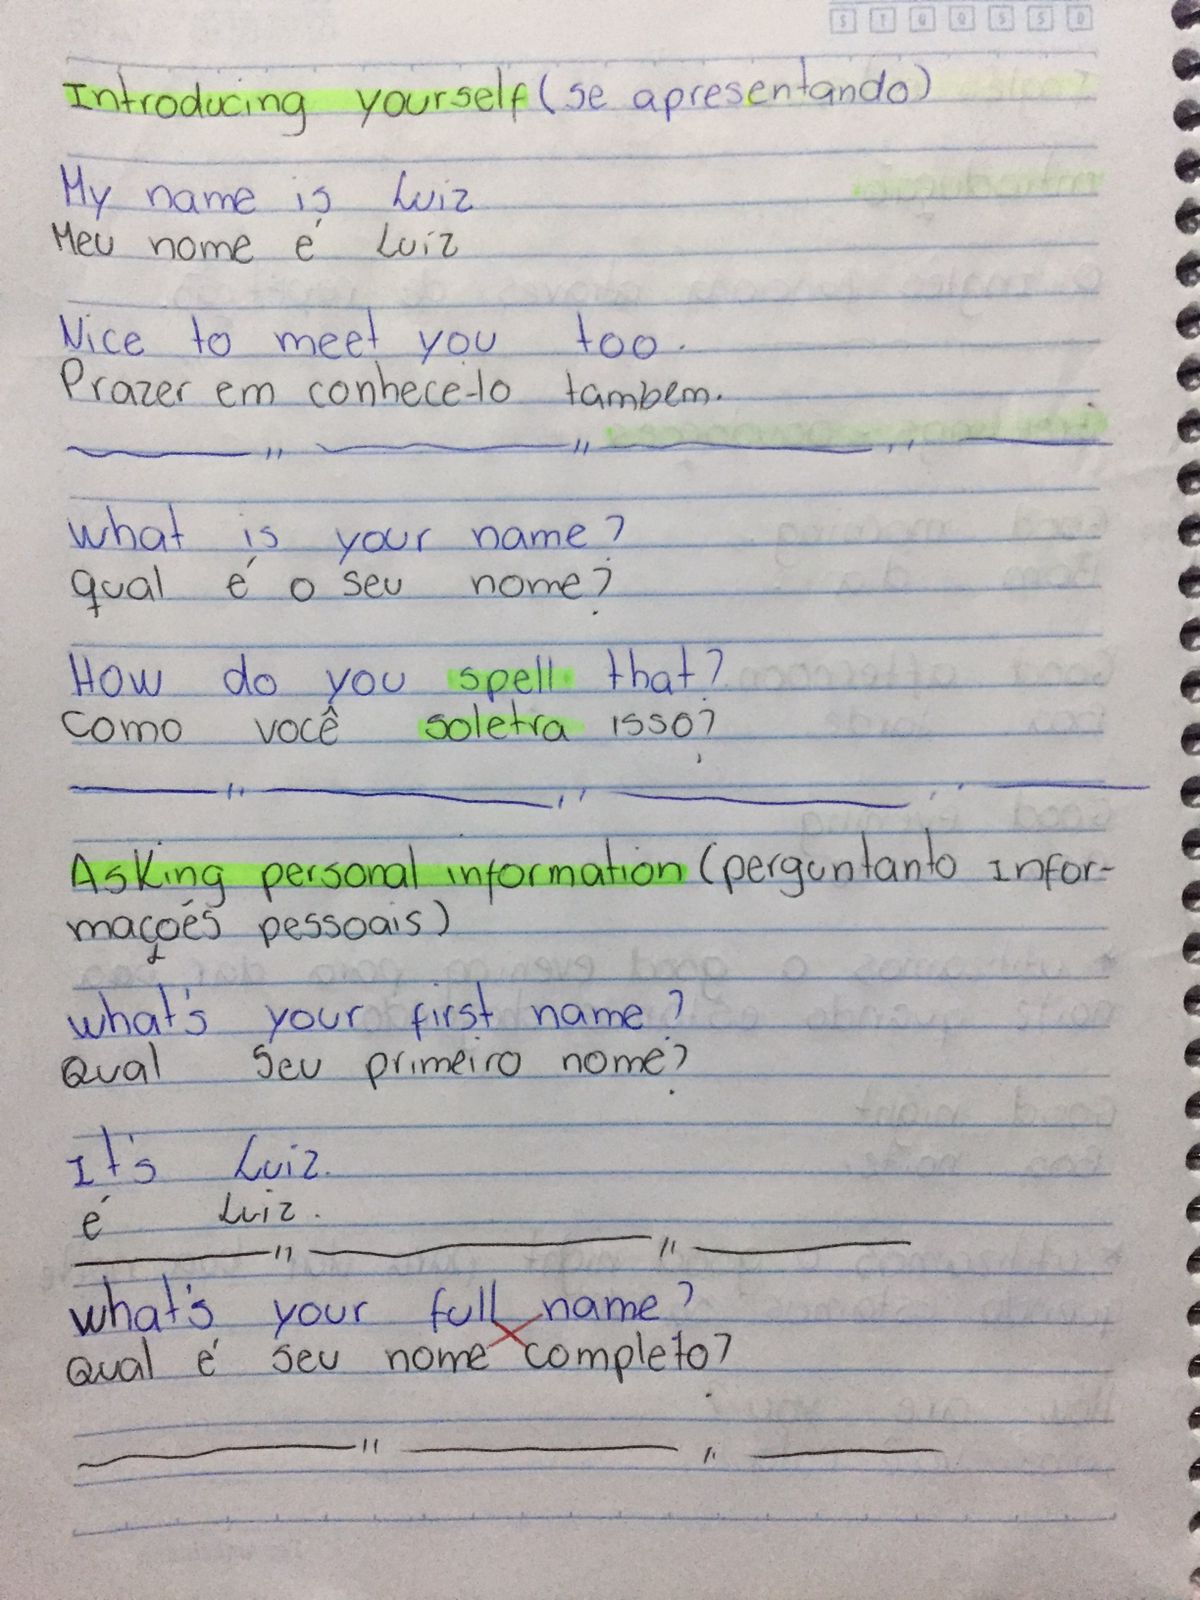 S T Q Q S S D
Introducing yourself (se apresentando)
My name is Luiz
Meu nome é Luiz
Nice to meet you too.
Prazer em conhece-lo tambem.
What is your name?
qual é o seu nome?
How do you spell that?
Como você soletra isso?
Asking personal information (perguntanto infor-
mações pessoais)
what's your first name?
Qual seu primeiro nome?
It's Luiz.
é Luiz.
what's your full name?
Qual é seu nome completo?